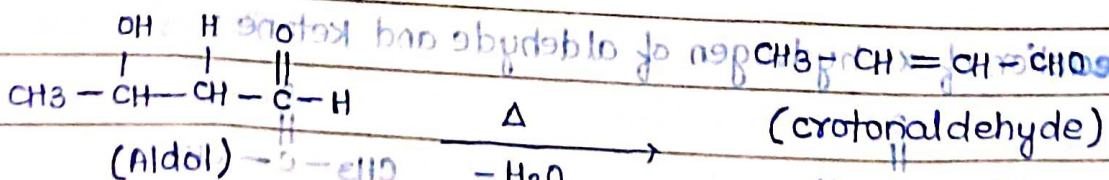 OH H O
CH3 – CH – CH – C – H
(Aldol)
Δ
– H2O
CH3 – CH = CH – CHO
(crotonaldehyde)